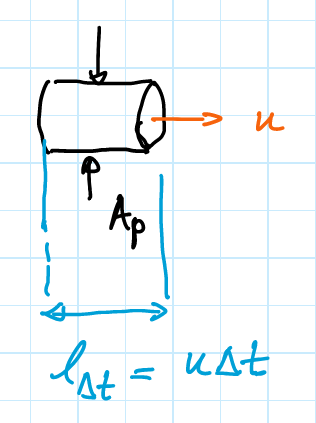 u
A_p
l_Δt = uΔt